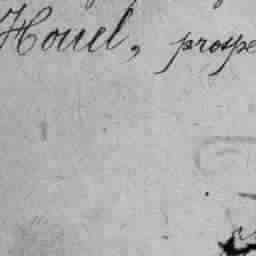 Houel, prospe